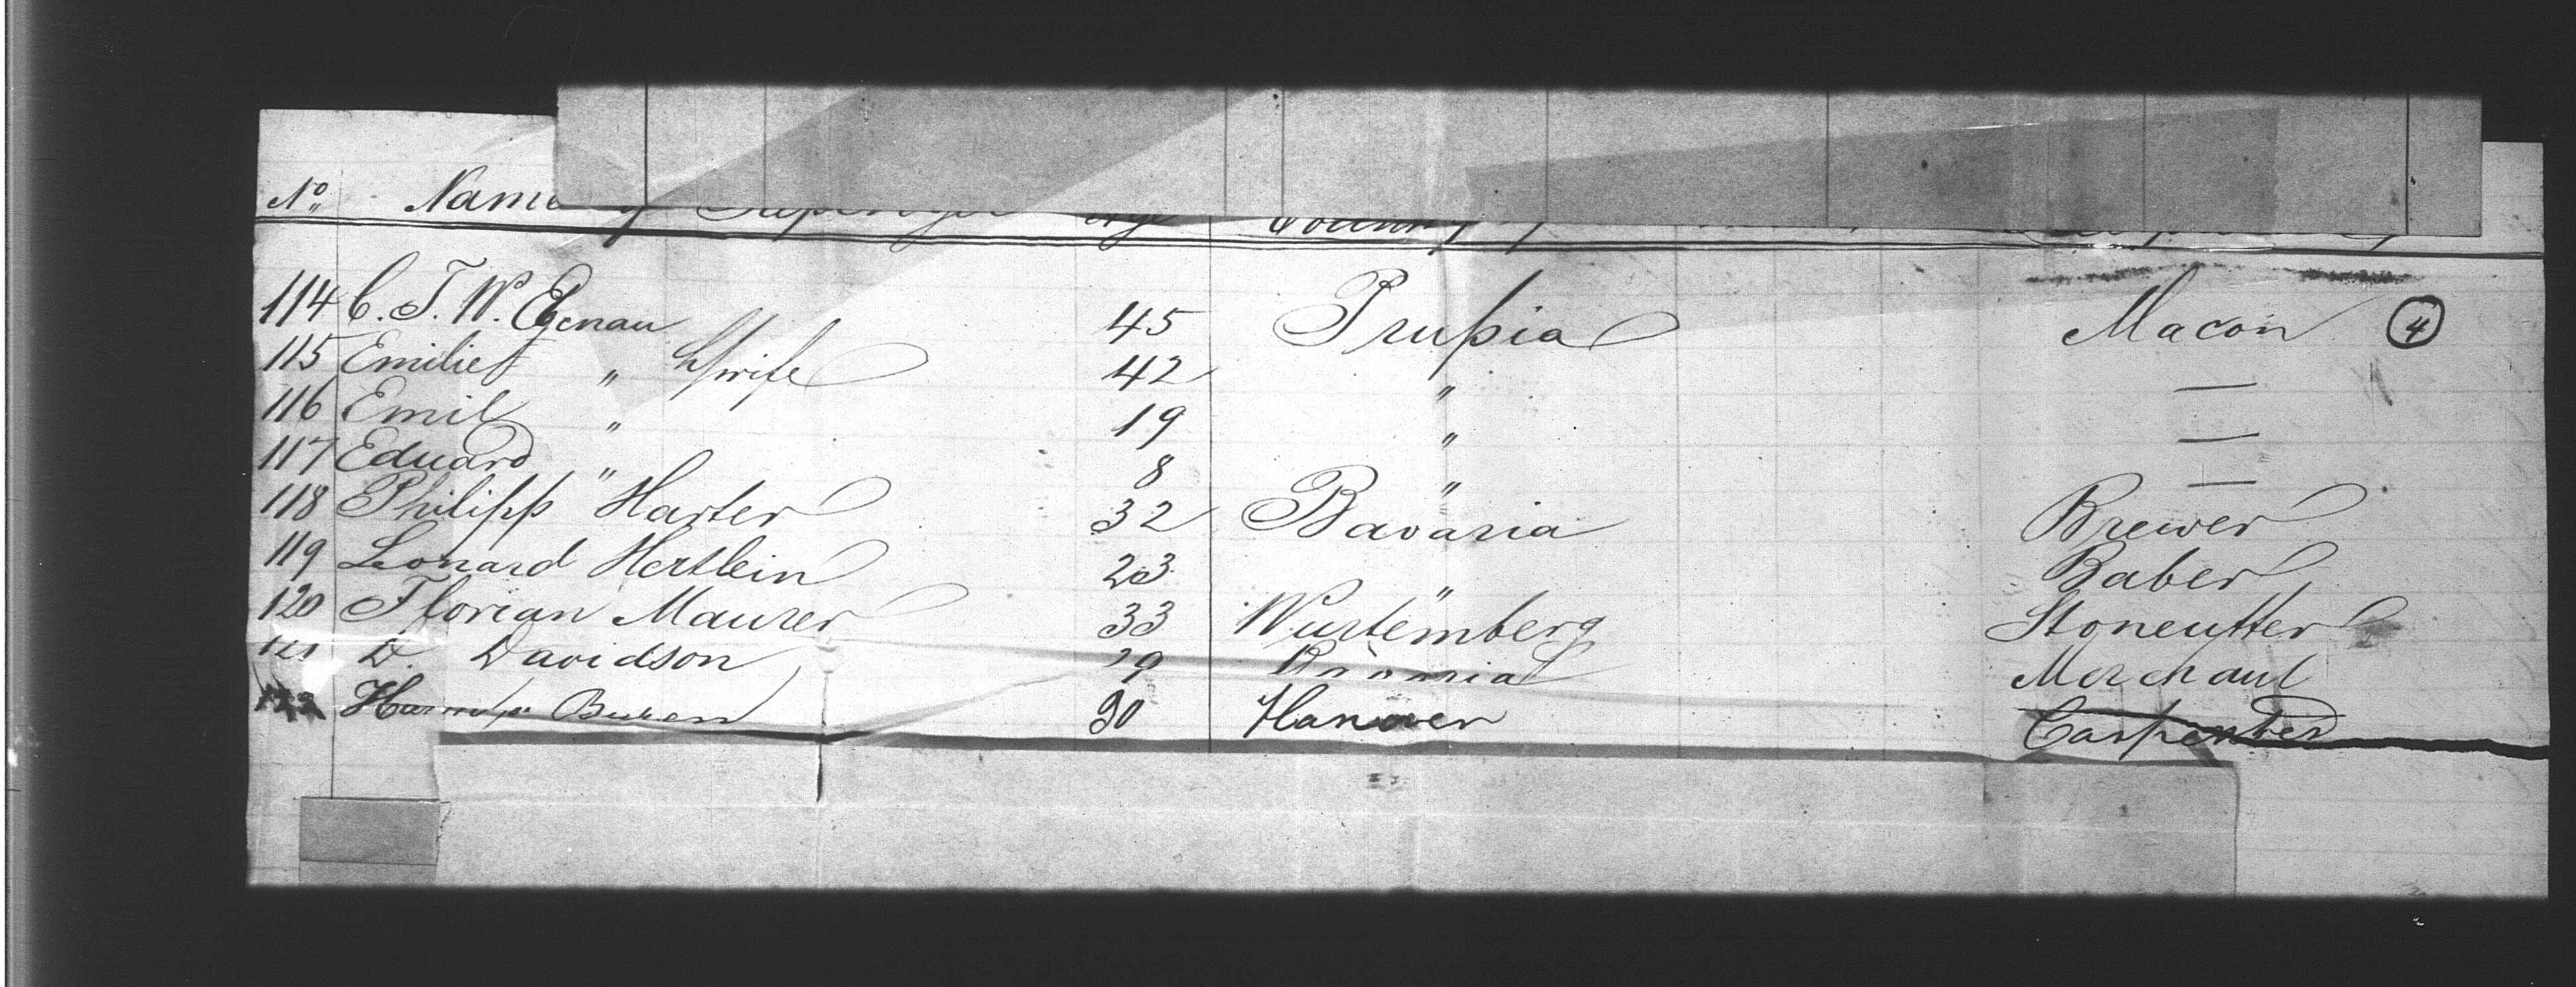 No. Name
114 C. T. W. Egenau 45 Prussia Macon 4
115 Emilie " wife 42 " —
116 Emil " 19 " —
117 Eduard " 8 " —
118 Philipp Harter 32 Bavaria Brewer
119 Leonard Hertlein 23 " Baber
120 Florian Maurer 33 Wurtemberg Stonecutter
121 D. Davidson 29 Merchant
122 30 Hanover Carpenter